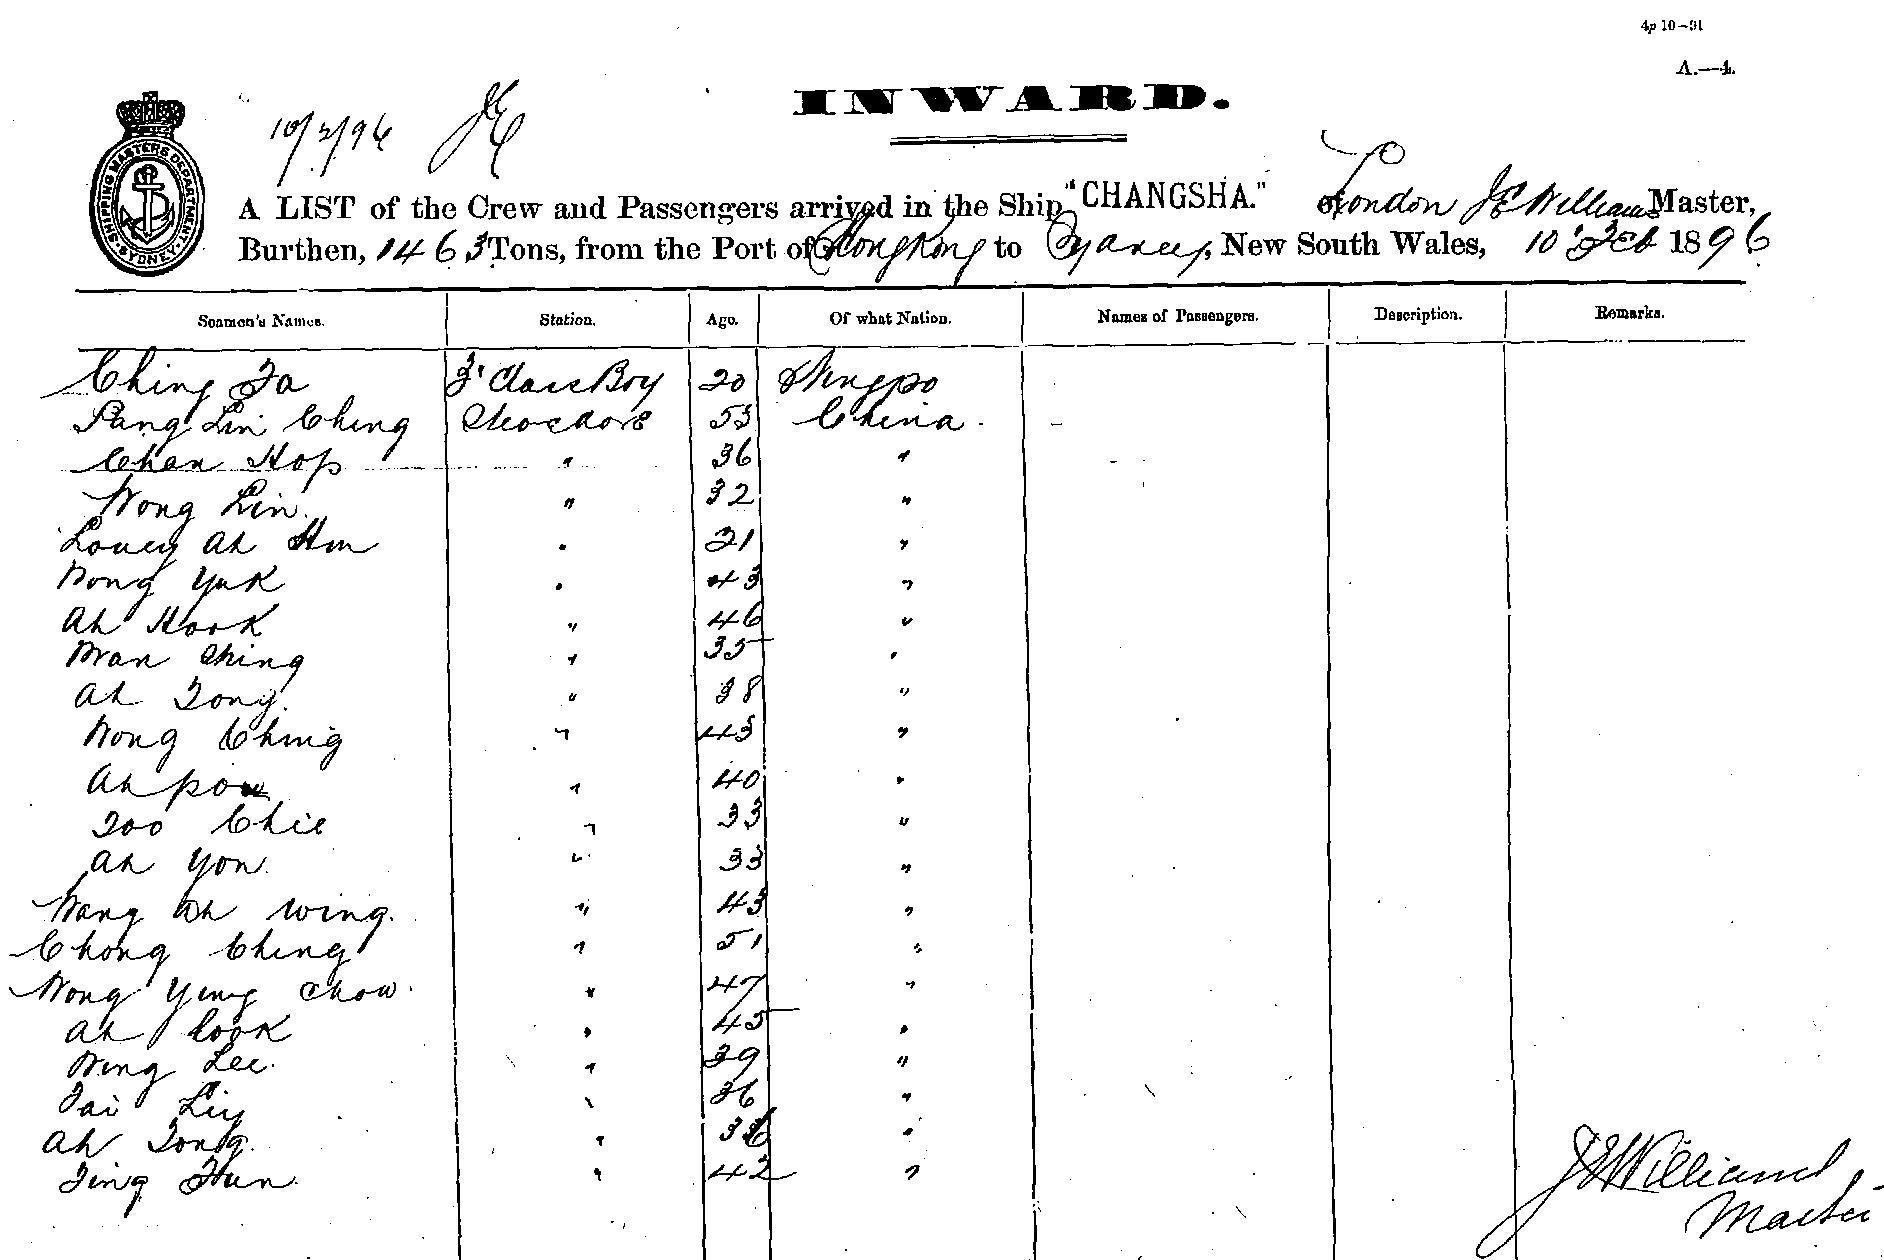 4p 10–91
A.—4.
INWARD.
10/2/96 JE
SHIPPING MASTERS DEPARTMENT SYDNEY
A LIST of the Crew and Passengers arrived in the Ship "CHANGSHA." of London J E Williams Master,
Burthen, 1463 Tons, from the Port of Hong Kong to Sydney, New South Wales, 10' Feb 1896
Seamen's Names. Station. Age. Of what Nation. Names of Passengers. Description. Remarks.
Ching Fa 3' Class Boy 20 Ningpo
Pang Lin Ching 53 China
Chan Hop " 36 "
Wong Lin " 32 "
Louey Ah Hm " 21 "
Wong Yuk " 43 "
Ah Hook " 46 "
Wan Ching " 35 "
Ah Tong. " 38 "
Wong Ching " 43 "
Ah pow " 40 "
Too Chie " 33 "
Ah Yon. " 33 "
Wang Ah Wing. " 43 "
Chong Ching " 51 "
Wong Ying Chow. " 47 "
Ah Cook " 45 "
Wing Lee. " 39 "
Tai Liy " 36 "
Ah Tong. " 36 "
Ting Hun. " 42 "
J E Williams
Master